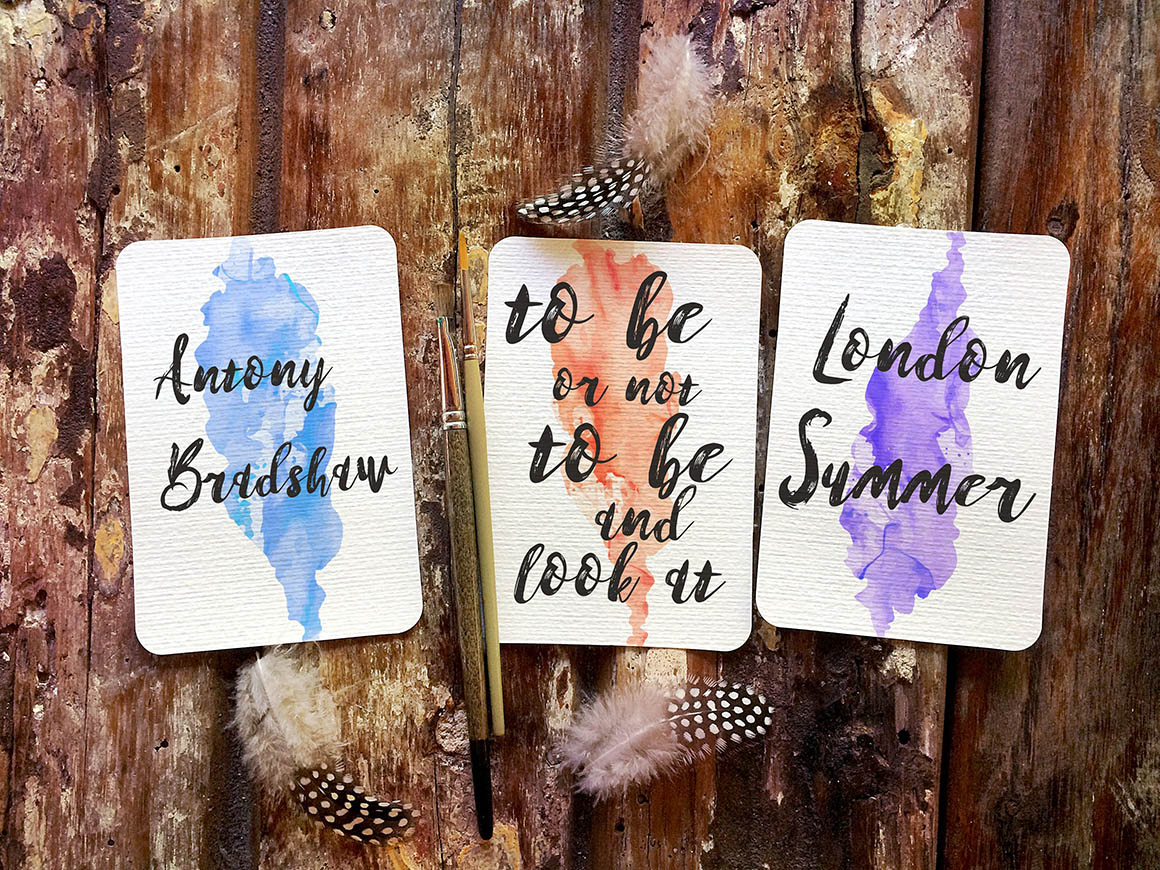 Antony
Bradshaw
to be
or not
to be
and
look at
London
Summer